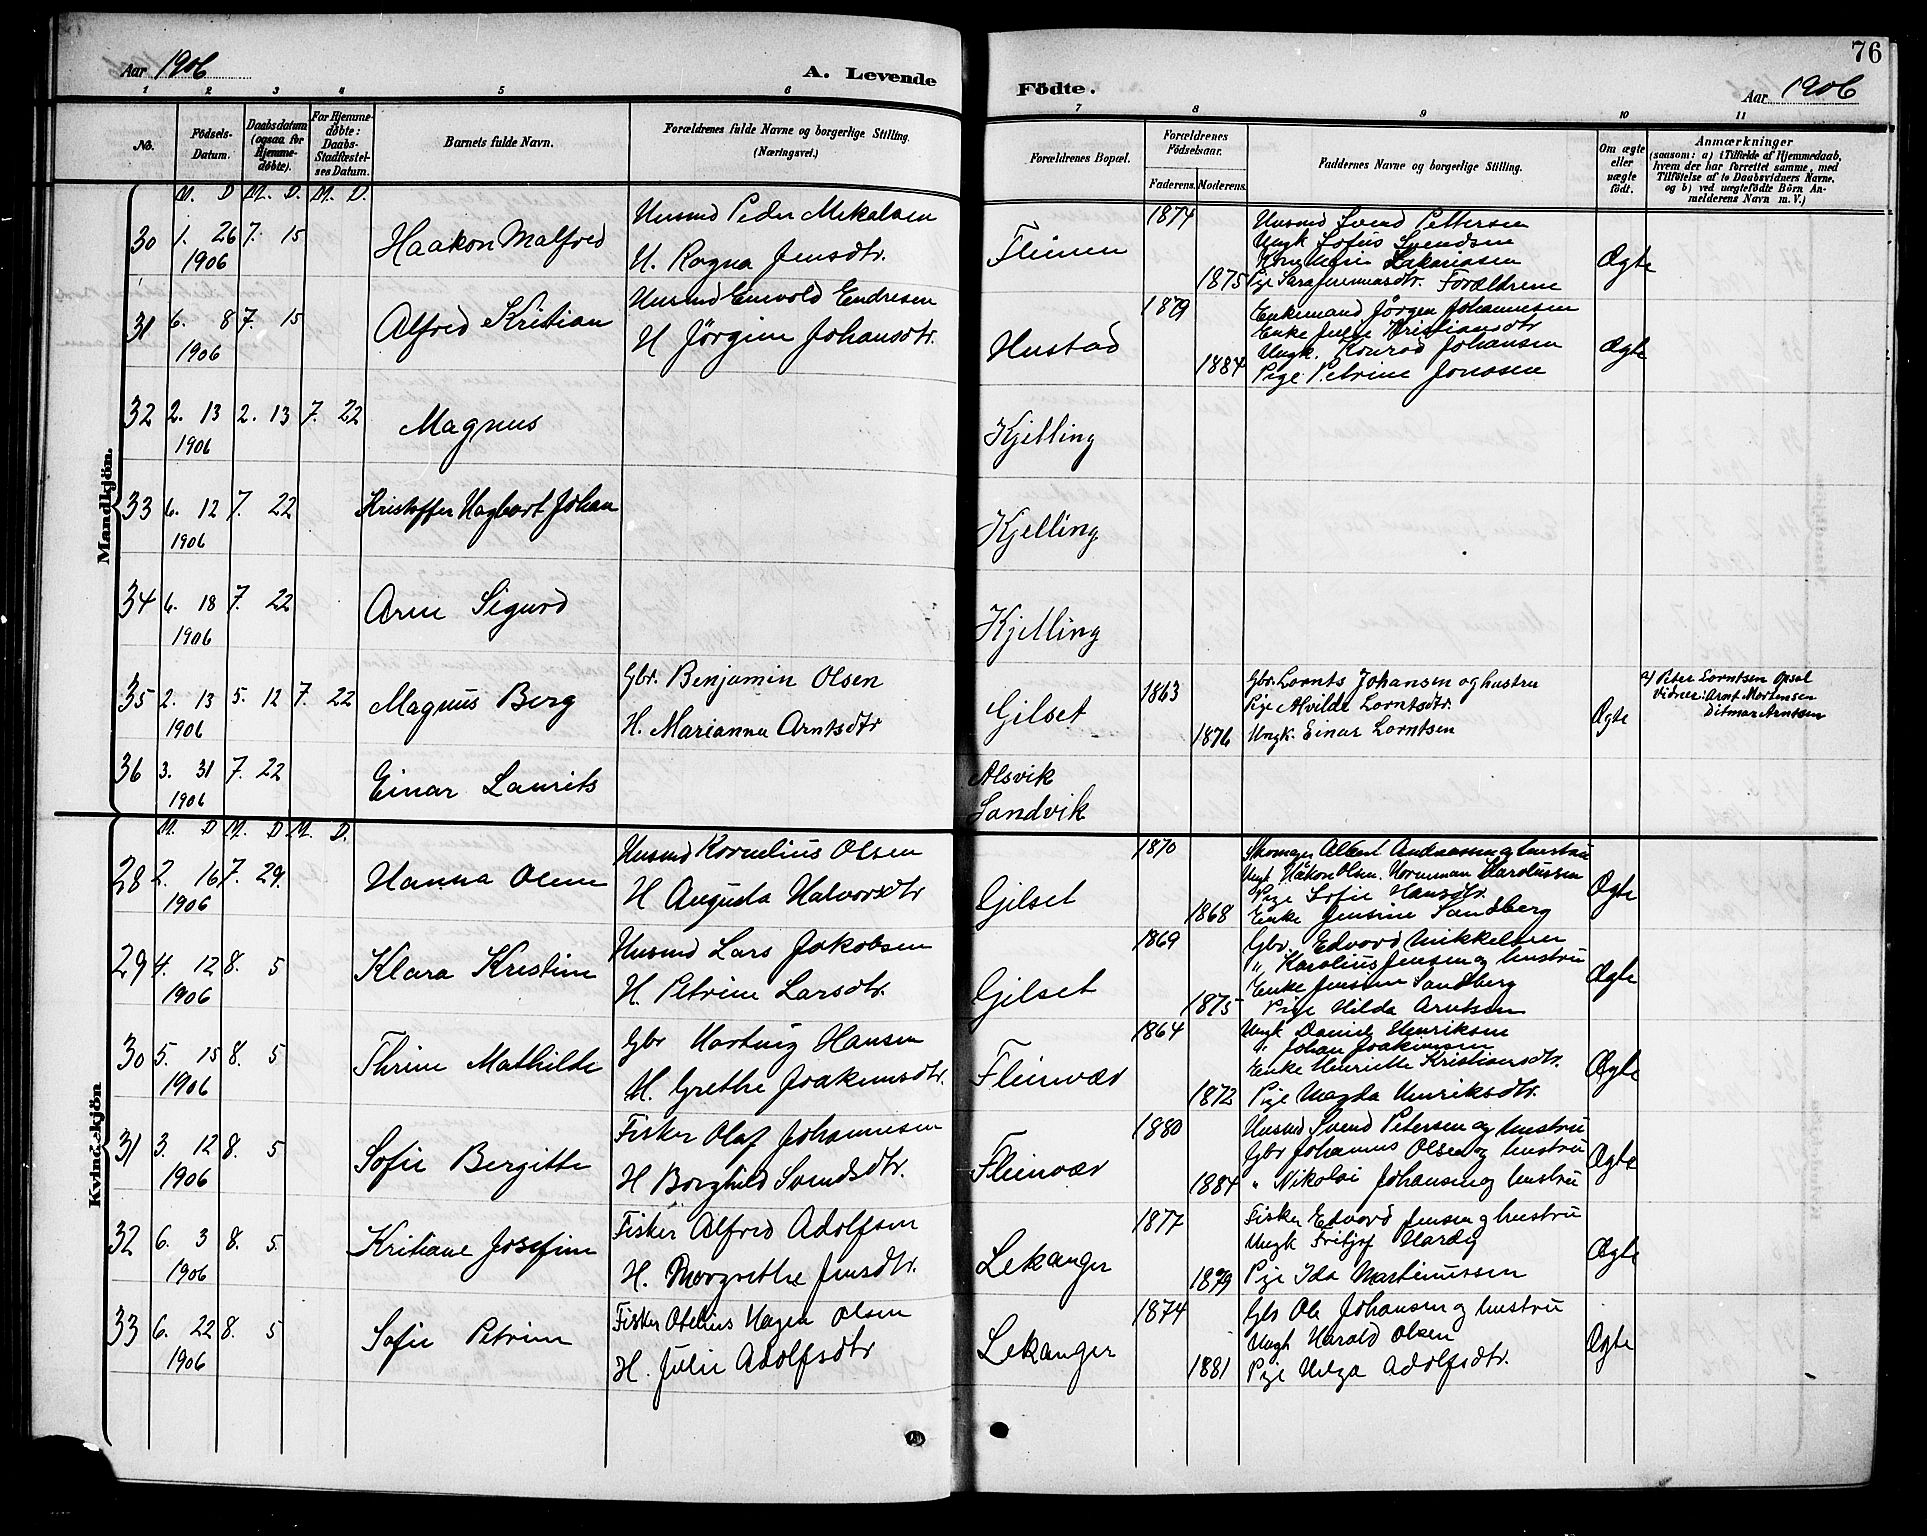 76
Aar 1906
A. Levende
Födte.
Aar 1906
1 2 3 4 5 6 7 8 9 10 11
No.
Födsels-Datum.
Daabsdatum (ogsaa for Hjemmedøbte).
For Hjemmedøbte: Daabs-Stadfæstelses Datum.
Barnets fulde Navn.
Forældrenes fulde Navne og borgerlige Stilling. (Næringsvei.)
Forældrenes Bopæl.
Forældrenes Födselsaar.
Faderens. Moderens.
Faddernes Navne og borgerlige Stilling.
Om ægte eller uægte födt.
Anmærkninger
(saasom: a) i Tilfælde af Hjemmedaab, hvem der har forrettet samme, med Tilföielse af to Daabsvidners Navne, og b) ved uægtefödte Börn Anmelderens Navn m. V.)
Mandkjön.
M. D. M. D. M. D.
30 1. 26 1906 7. 15 Haakon Malfred
Husmd Peder Mekalsen
H. Ragna Jensdtr.
Fleinen 1874 1875
Husmd Svend Pettersen
Ungk Sofus Svendsen
Kone Marie Zakariasen
Forældrene
Ægte
31 6. 8 1906 7. 15 Alfred Kristian
Husmd Enevold Endresen
H Jörgine Johansdtr.
Hustad 1879 1884
Enkemand Jörgen Johannesen
Enke Julie Kristiansdtr
Ungk. Konrad Johansen
Pige Petrine Jonssen
Ægte
32 2. 13 1906 2. 13 7. 22 Magnus
Kjelling
33 6. 12 1906 7. 22 Kristoffer Hagbart Johan
Kjelling
34 6. 18 1906 7. 22 Arne Sigurd
Kjelling
35 2. 13 1906 5. 12 7. 22 Magnus Berg
Gbr. Benjamin Olsen
H. Marianna Arntsdtr
Gilset 1863 1876
Gbr. Lornts Johansen og hustru
Pige Alvilde Lorntsdtr.
Ungk. Einar Lorntsen
Ægte
a) Peter Lorntsen Opsal
Vidner: Arnt Mortensen
Ditmar Arntsen
36 3. 31 1906 7. 22 Einar Laurits
Alsvik
Sandvik
Kvindekjön
M. D M. D M. D.
28 2. 16 1906 7. 29. Hanna Oline
Husmd Kornelius Olsen
H Augusta Halvorsdtr
Gilset 1870 1868
Skomager Albert Andreassen og hustru
Ungk Håkon Olsen. Norman Karolussen
Pige Sofie Hansdtr.
Enke Jensine Sandberg
Ægte
29 4. 12 1906 8. 5 Klara Kristine
Husmd Lars Jakobsen
H. Petrine Larsdtr.
Gilset 1869 1875
Gbr. Edvard Mikkelsen
" Karolius Jensen og hustru
Enke Jensine Sandberg
Pige Hilda Arntsen
Ægte
30 5. 15 1906 8. 5 Thrine Mathilde
Gbr Hartvig Hansen
H. Grethe Joakimsdtr.
Fleinvær 1864 1872
Ungk Daniel Henriksen
" Johan Joakimsen
Enke Henriette Kristiansdtr.
Pige Magda Henriksdtr.
Ægte
31 3. 12 1906 8. 5 Sofie Bergitte
Fisker Olaf Johannesen
H Borghild Svendsdtr.
Fleinvær 1880 1884
Husmd Svend Petersen og hustru
Gbr Johannes Olsen og hustru
" Nikolai Johansen og hustru
Ægte
32 6. 3 1906 8. 5. Kritiane Josefine
Fisker Alfred Adolfsen
H. Margrethe Jensdtr.
Lekanger 1877 1879
Fisker Edvard Jensen og hustru
Ungk Fritjof Hardy
Pige Ida Martinussen
Ægte
33 6. 22 1906 8. 5 Sofie Petrine
Fisker Otelius Hagen Olsen
H. Julie Adolfsdtr
Lekanger 1874 1881
Gbr Ole Johansen og hustru
Ungk Harald Olsen
Pige Helga Adolfsdtr.
Ægte